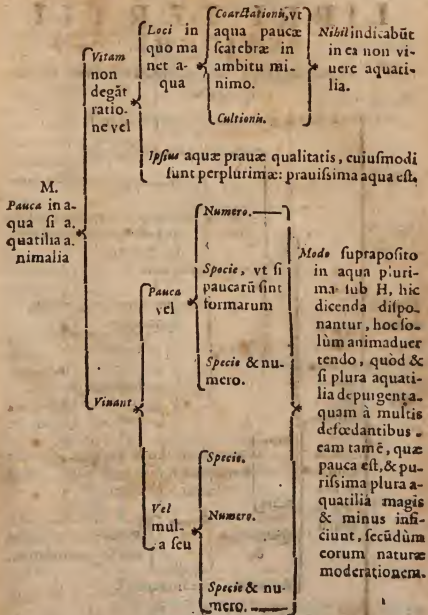 M.
Pauca in a-
qua si a.
quatilia a.
nimalia
Vitam
non
degãt
ratio-
ne vel
Loci in
quo ma
net a-
qua
Coarctationis, vt
aqua paucæ
scatebræ in
ambitu mi-
nimo.
Cultionis.
Nihil indicabũt
in ea non vi-
uere aquati-
lia.
Ipsius aquæ prauæ qualitatis, cuiusmodi
sunt perplurimæ: prauissima aqua est.
Viuant
Pauca
vel
Numero.
Specie, vt si
paucarũ sint
formarum
Specie & nu-
mero.
Vel
mul-
a seu
Specie.
Numero.
Specie & nu-
mero.
Modo supraposito
in aqua pluri-
ma sub H, hic
dicenda dispo-
nantur, hoc so-
lùm animaduer
tendo, quòd &
si plura aquati-
lia depurgent a-
quam à multis
defœdantibus.
eam tamẽ, quæ
pauca est, & pu-
rissima plura a-
quatilia magis
& minus infi-
ciunt, secũdùm
eorum naturæ
moderationem.